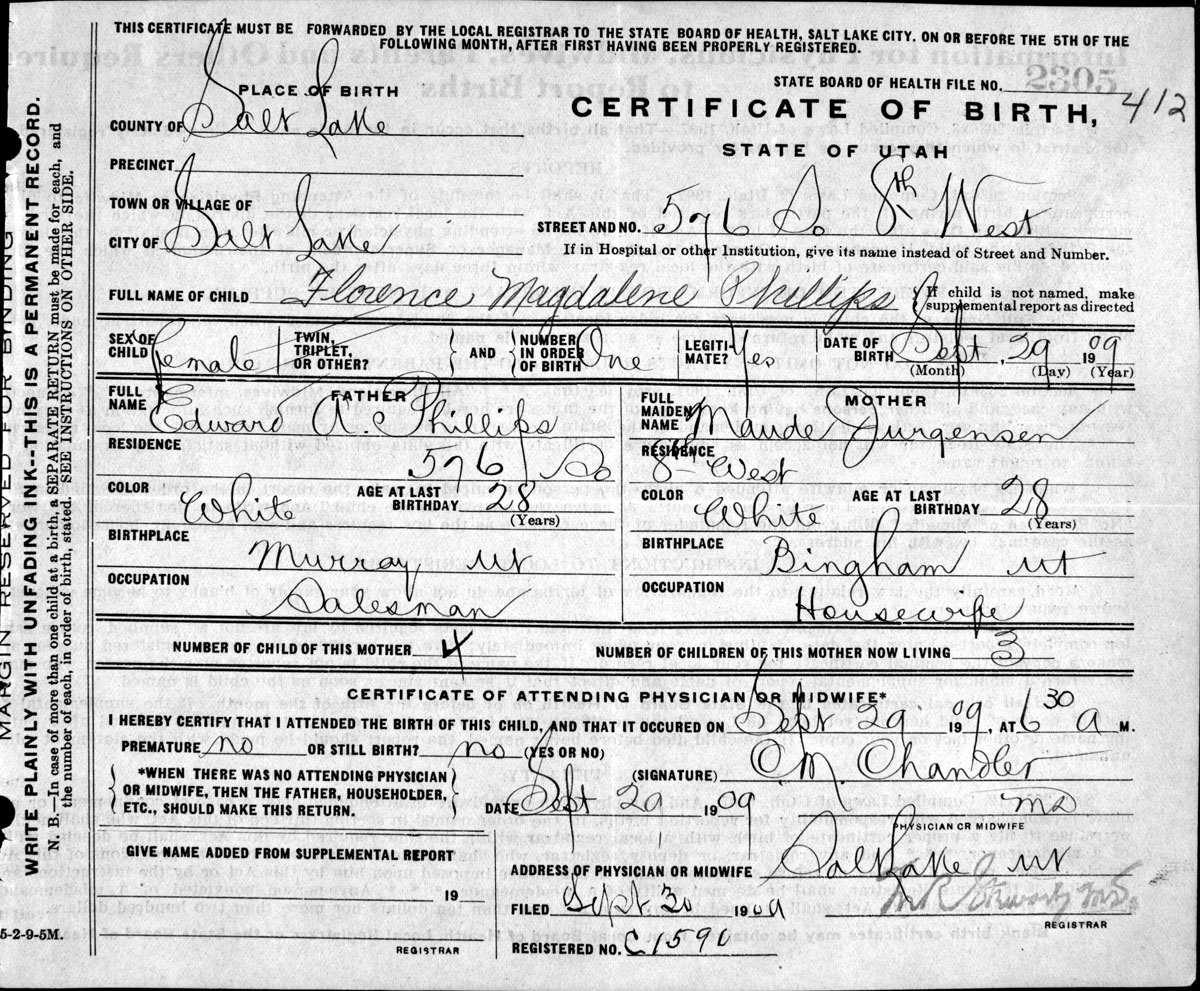 THIS CERTIFICATE MUST BE FORWARDED BY THE LOCAL REGISTRAR TO THE STATE BOARD OF HEALTH, SALT LAKE CITY, ON OR BEFORE THE 5TH OF THE
FOLLOWING MONTH, AFTER FIRST HAVING BEEN PROPERLY REGISTERED.
STATE BOARD OF HEALTH FILE NO. 2305
412
PLACE OF BIRTH
CERTIFICATE OF BIRTH,
STATE OF UTAH
COUNTY OF Salt Lake
PRECINCT
TOWN OR VILLAGE OF
CITY OF Salt Lake
STREET AND NO. 576 So 8th West
If in Hospital or other Institution, give its name instead of Street and Number.
FULL NAME OF CHILD Florence Magdalene Phillips { If child is not named, make
supplemental report as directed
SEX OF CHILD Female { TWIN, TRIPLET, OR OTHER? } AND { NUMBER IN ORDER OF BIRTH One LEGITIMATE? Yes DATE OF BIRTH Sept, 29 1909
(Month) (Day) (Year)
FATHER
FULL NAME Edward R. Phillips
RESIDENCE 576 So
COLOR White AGE AT LAST BIRTHDAY 28
(Years)
BIRTHPLACE Murray Ut
OCCUPATION Salesman
MOTHER
FULL MAIDEN NAME Maude Jurgensen
RESIDENCE 8th West
COLOR White AGE AT LAST BIRTHDAY 28
(Years)
BIRTHPLACE Bingham Ut
OCCUPATION Housewife
NUMBER OF CHILD OF THIS MOTHER 4 NUMBER OF CHILDREN OF THIS MOTHER NOW LIVING 3
CERTIFICATE OF ATTENDING PHYSICIAN OR MIDWIFE*
I HEREBY CERTIFY THAT I ATTENDED THE BIRTH OF THIS CHILD, AND THAT IT OCCURED ON Sept 29 1909, AT 6 30 a M.
PREMATURE no OR STILL BIRTH? no (YES OR NO)
{ *WHEN THERE WAS NO ATTENDING PHYSICIAN
OR MIDWIFE, THEN THE FATHER, HOUSEHOLDER,
ETC., SHOULD MAKE THIS RETURN. }
(SIGNATURE) O.M. Chandler
DATE Sept 29 1909 MD
PHYSICIAN OR MIDWIFE
GIVE NAME ADDED FROM SUPPLEMENTAL REPORT
19
REGISTRAR
ADDRESS OF PHYSICIAN OR MIDWIFE Salt Lake Ut
FILED Sept 30 1909
REGISTRAR
REGISTERED NO. C1590
5-2-9-5M.
MARGIN RESERVED FOR BINDING
WRITE PLAINLY WITH UNFADING INK--THIS IS A PERMANENT RECORD.
N. B.—In case of more than one child at a birth, a SEPARATE RETURN must be made for each, and
the number of each, in order of birth, stated. SEE INSTRUCTIONS ON OTHER SIDE.